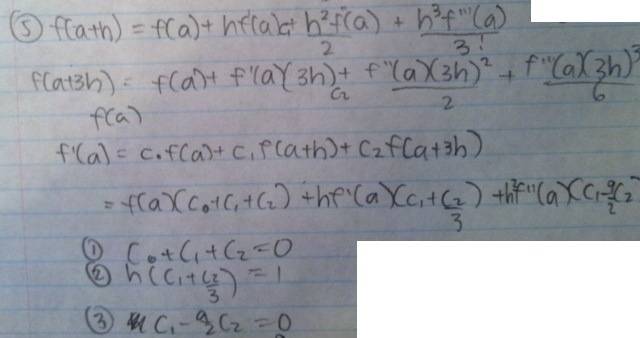 ⑤ f(a+h) = f(a) + hf'(a) + h²f''(a)/2 + h³f'''(a)/3!
f(a+3h) = f(a) + f'(a)(3h) + f''(a)(3h)²/2 + f'''(a)(3h)³/6
C₂
f(a)
f'(a) = C₀f(a) + C₁f(a+h) + C₂f(a+3h)
= f(a)(C₀+C₁+C₂) + hf'(a)(C₁+C₂/3) + h²f''(a)(C₁-9/2C₂
① C₀+C₁+C₂=0
② h(C₁+C₂/3) = 1
③ C₁-9/2C₂ = 0